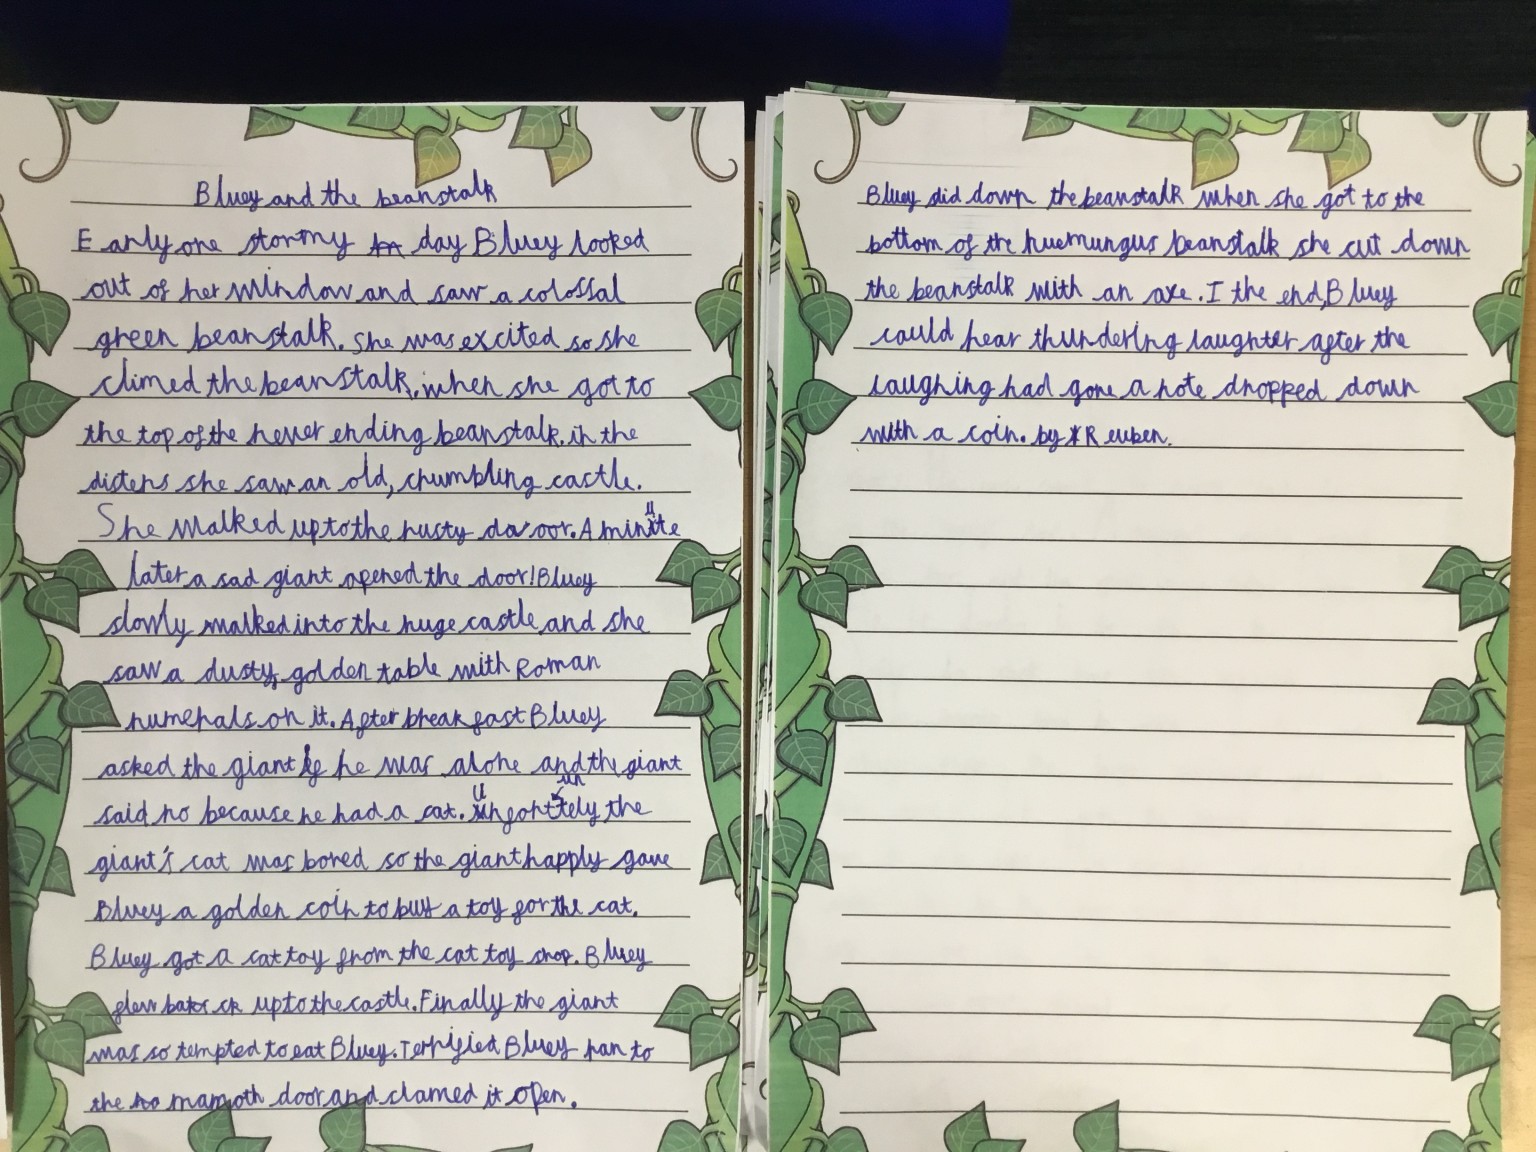 Bluey and the beanstalk
Early one stormy day Bluey looked
out of her window and saw a colossal
green beanstalk. She was excited so she
climed the beanstalk. when she got to
the top of the never ending beanstalk. in the
distens she saw an old, crumbling castle.
She walked up to the rusty door. A minute
later a sad giant opened the door! Bluey
slowly walked into the huge castle and she
saw a dusty, golden table with Roman
numerals on it. After breakfast Bluey
asked the giant if he was alone and the giant
said no because he had a cat. Unfortuntely the
giant's cat was bored so the giant happly gave
Bluey a golden coin to buy a toy for the cat.
Bluey got a cat toy from the cat toy shop. Bluey
flew back up to the castle. Finally the giant
was so tempted to eat Bluey. Terrified Bluey ran to
the mamoth door and clamed it open.
Bluey did down the beanstalk when she got to the
bottom of the huemungus beanstalk she cut down
the beanstalk with an axe. I the end, Bluey
could hear thundering laughter after the
laughing had gone a note dropped down
with a coin. by Reuben.